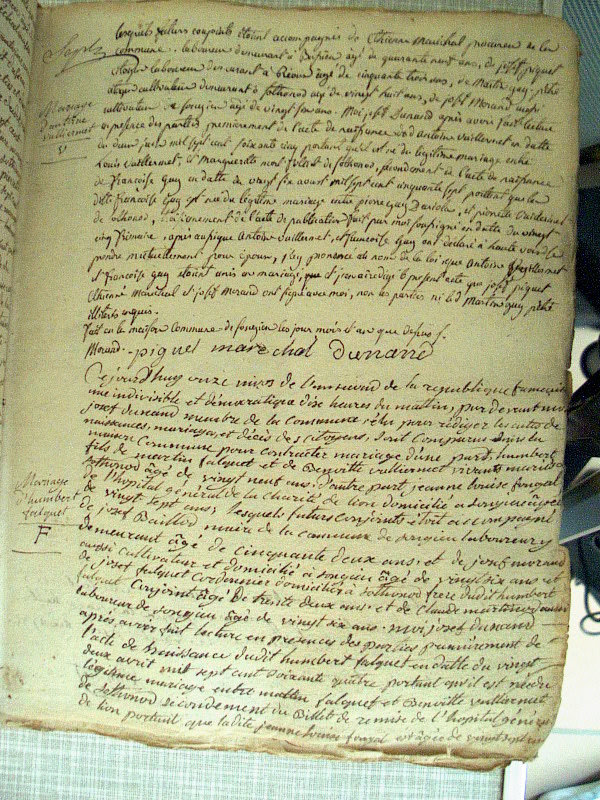 lesquels futurs conjoints étoient accompagnés de Etienne Marechal procureur de la
commune, laboureur demeurant à âgé de quarante neuf ans, de josep piquet
laboureur demeurant à âgé de cinquante trois ans, de Martin guy
cultivateur demeurant à Sothonod âgé de vingt huit ans, de josep Morand aussi
cultivateur de songieu âgé de vingt six ans. Moi josep Dunand après avoir fait lecture
en presence des parties premierement de l'acte de naissance dud antoine vuilliermet en datte
du juin mil sept cent soixante cinq portant qu'il est né du légitime mariage entre
Louis vuilliermet, et Marguerite de Sothonod, secondement de l'acte de naissance
de francoise guy en datte du vingt six aoust mil sept cent cinquante sept portant que la
dite francoise guy est née du légitime mariage entre pierre guy et pierrette vuilliermet
de Sothonod, de l'acte de publication fait par moi soussigné en datte du vingt
cinq frimaire, après aussi que Antoine vuilliermet, et francoise guy ont déclaré à haute voix se
prendre mutuellement pour époux, j'ay prononcé au nom de la loi que Antoine vuilliermet
et francoise guy étoient unis en mariage, et j'en ai rédigé le présent acte que josep piquet
Etienne Marechal et josep Morand ont signé avec moi, non les parties ni led Martin guy
illiterés enquis.
fait en la maison Commune de songieu les jour mois et an que dessus
Morand piquet marechal Dunand
Mariage
d'antoine
vuilliermet
Ce jourd'huy onze nivos de l'an second de la republique francaise
une indivisible et démocratique dise heures du mattin, par devant moi
josef dunand membre de la commune élu pour rédiger les actes de
naissances, mariages, et décés des citoyens, sont comparus dans la
maison Commune pour contracter mariage d'une part humbert
fils de martin falquet et de Benoitte vulliermet vivants mariés à
Sothonod âgé de vingt neuf ans. d'autre part jeanne louise fonzal
de l'hopital général de la Charité de lion domicilié à songieu âgée
de vingt sept ans; lesquels futurs conjoints étoit accompagné
de josef Baillod maire de la commune de songieu laboureur y
demeurant âgé de cinquante deux ans; et de josef morand
aussi cultivateur et domicilié à songieu âgé de vingt six ans et
de josef falquet cordonnier domicilié à sothonod frere dudit humbert
falquet conjoint âgé de trente deux ans; et de Claude martinod aussi
laboureur de songieu âgé de vingt six ans. moi josef dunand
après avoir fait lecture en presences des parties premierement de
l'acte de naissance dudit humbert falquet en datte du vingt
deux avrit mit sept cent soixante quatre portant qu'il est né du
légitime mariage entre mattin falquet et Benoitte vulliermet
de sothonod secondement du Billet de remise de l'hopital general
de lion portant que ladite jeanne louise fonzal est âgée de vingt sept ans
Mariage
d'humbert
falquet
F